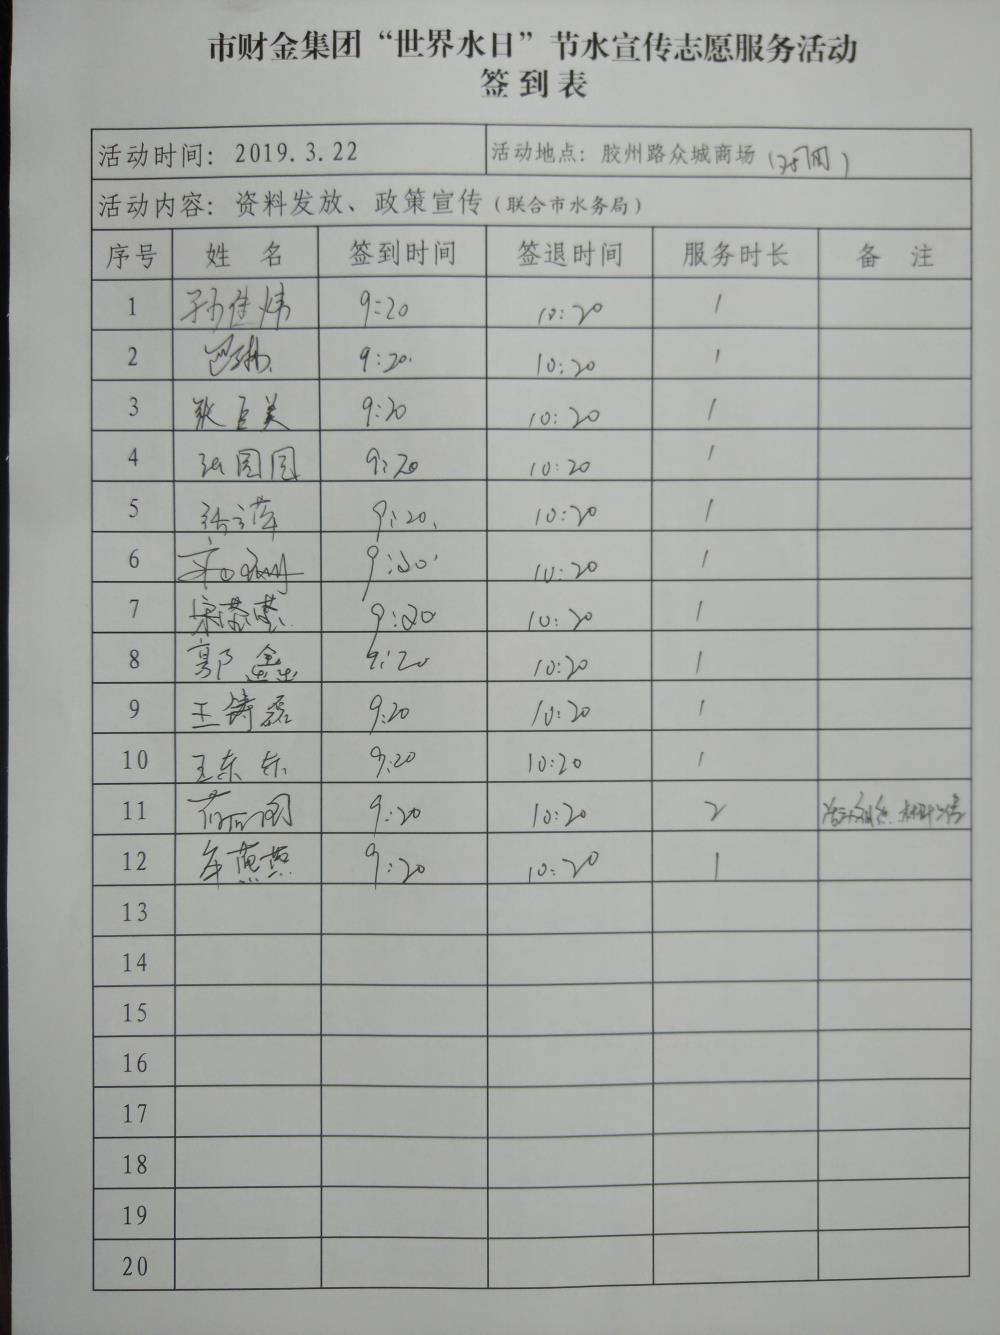 市财金集团“世界水日”节水宣传志愿服务活动
签到表
活动时间：2019.3.22 活动地点：胶州路众城商场
活动内容：资料发放、政策宣传（联合市水务局）
序号 姓名 签到时间 签退时间 服务时长 备注
1 孙佳炜 9:20 10:20 1
2 9:20. 10:20 1
3 张巨美 9:20 10:20 1
4 张圆圆 9:20 10:20 1
5 9:20. 10:20 1
6 10:20 1
7 9:20 10:20 1
8 郭鑫 9:20 10:20 1
9 王铸磊 9:20 10:20 1
10 王东东 9:20 10:20 1
11 9:20 10:20 2
12 牟燕燕 9:20 10:20 1
13
14
15
16
17
18
19
20